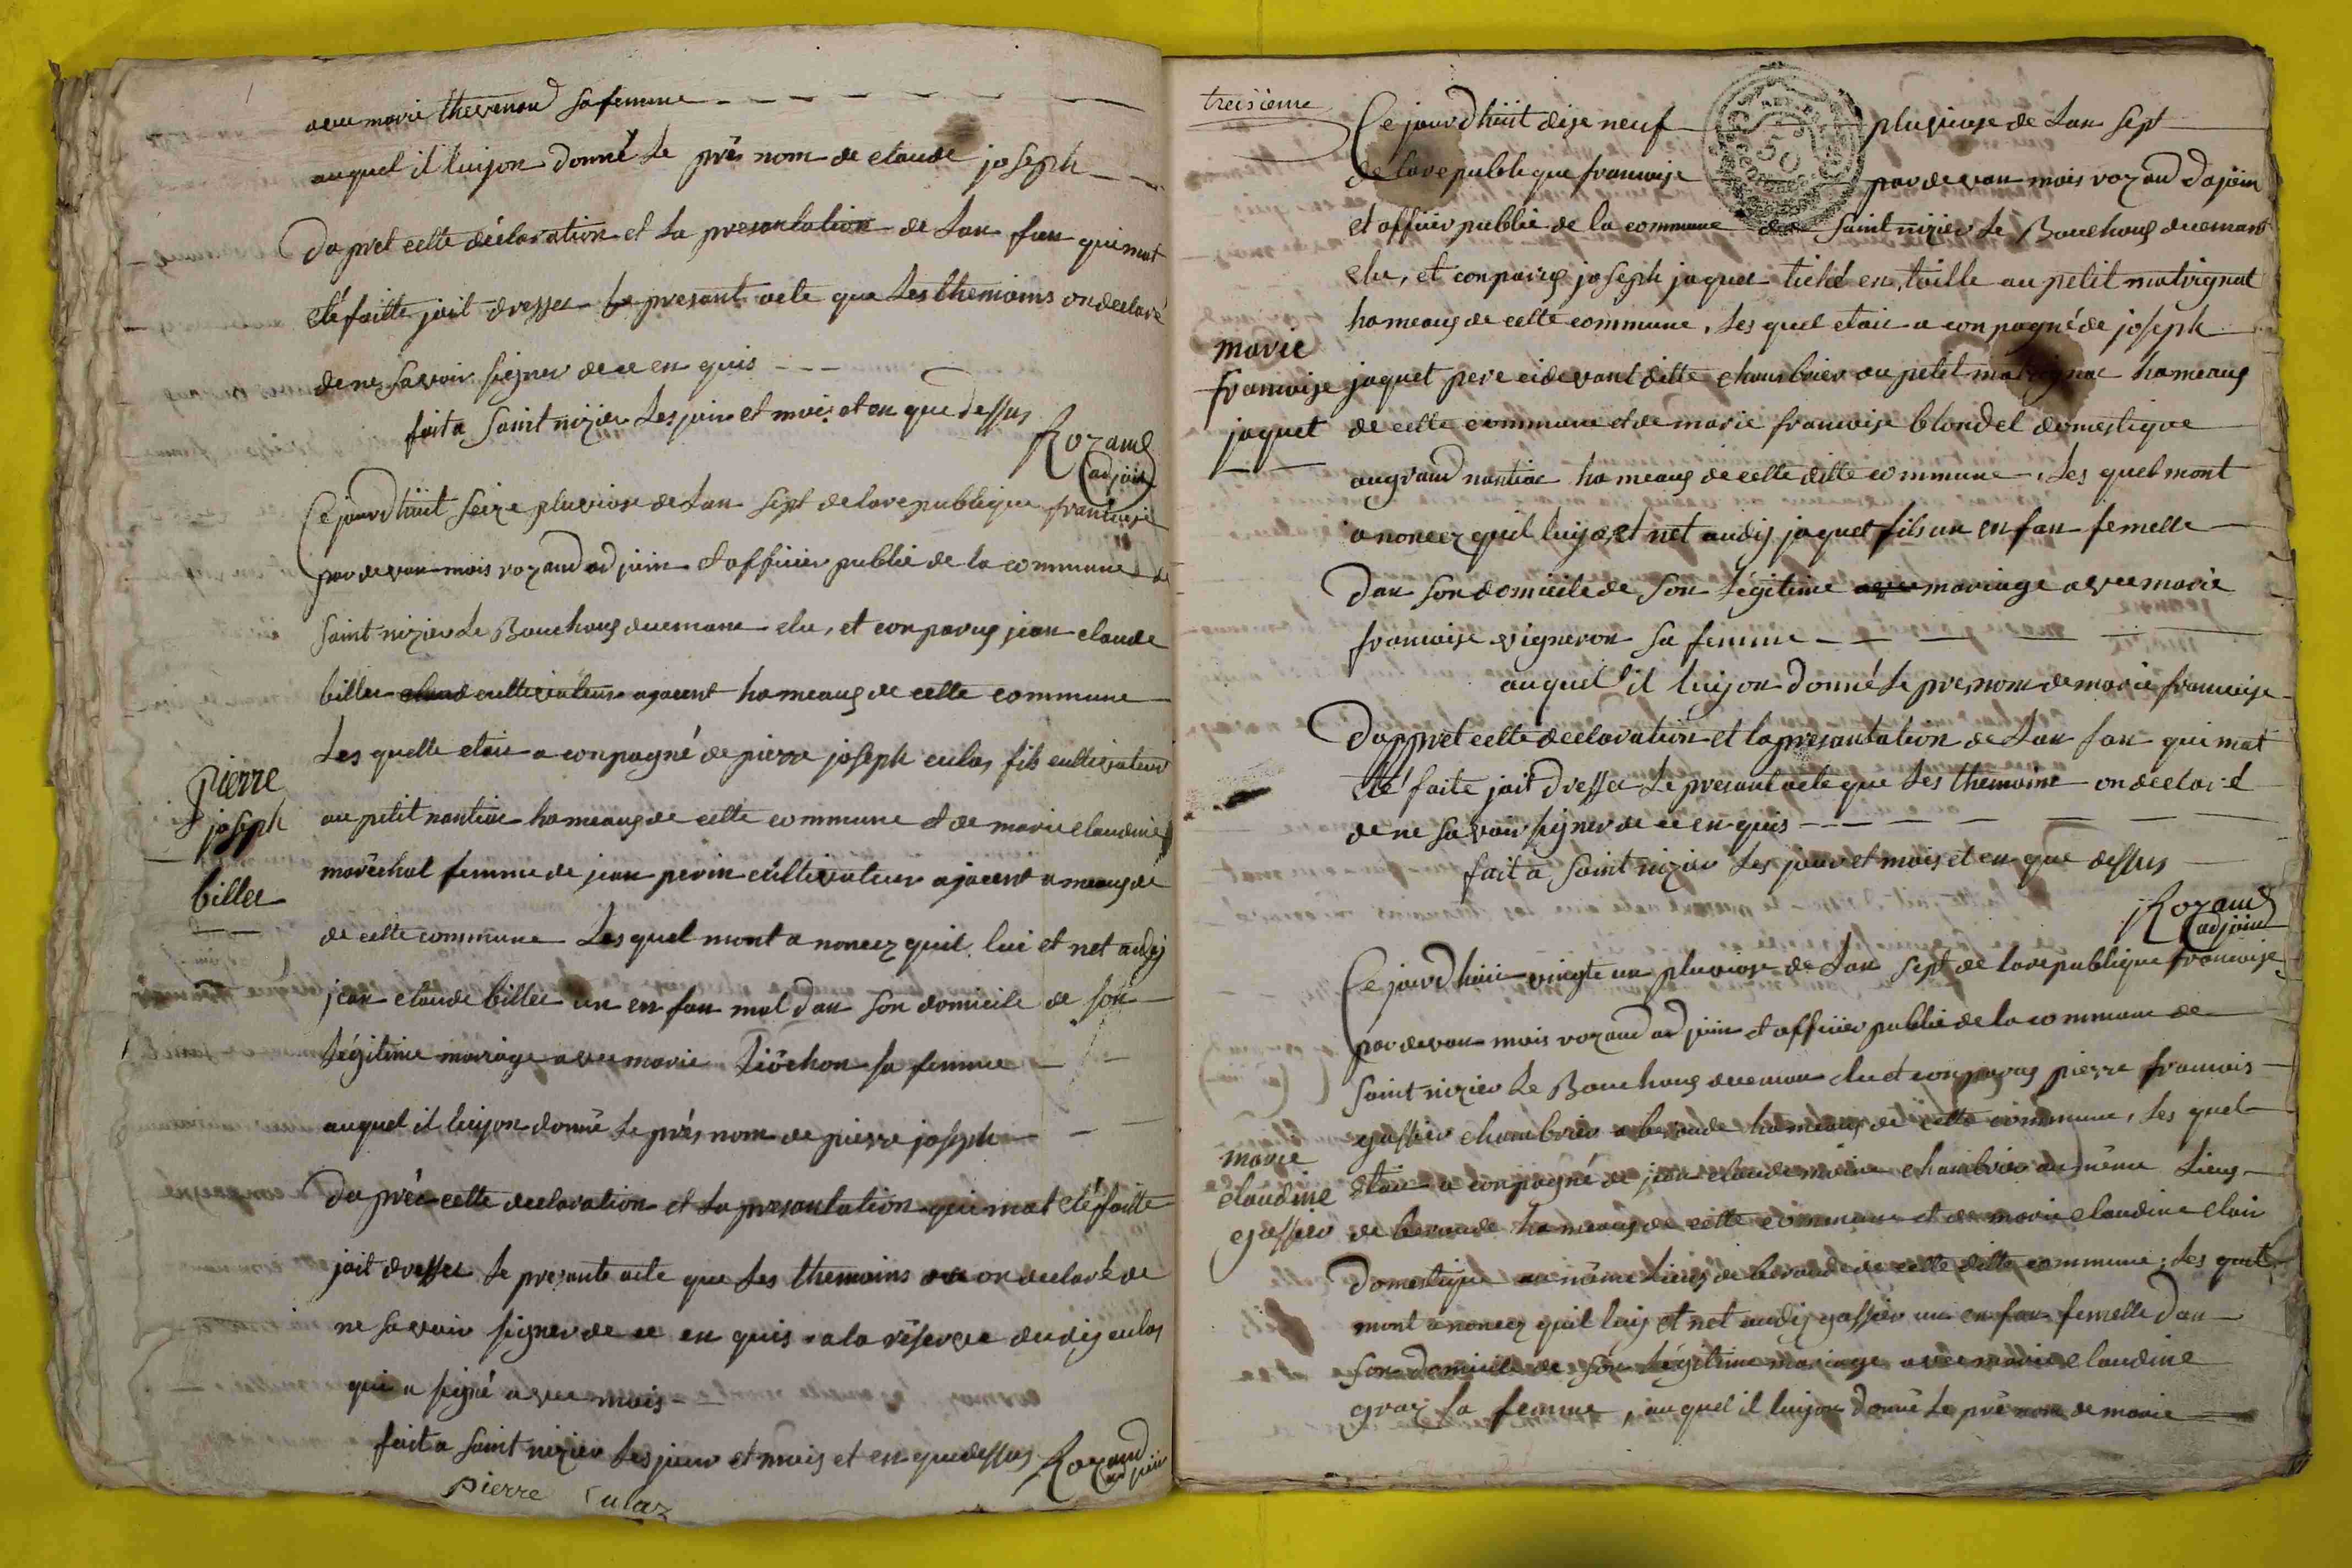 avec marie thevenond sa femme
auquel il luijon donné le prés nom de claude joseph
Dapret cette déclaration et la presantation de lan fan qui mat
eté faitte jait dresser le presant acte que les themoins on declaré
de nes savoir signer de ce en quis
fait a saint nizier les jour et mois et en que dessus
Rozand
adjoint
Ce jourdhuit seize pluviose de lan sept de la republique francoise
par devan mois rozand adjoin et officier public de la commune de
saint nizier le Bouchoug duemant elu, et conparug jean claude
billet cultivateur ajacent hameaug de cette commune
les quelle etait a conpagné de pierre joseph culas fils cultivateur
au petit nantiac hameaug de cette commune et de marie claudine
maréchal femme de jean perin cultivateur ajacent ameaug de
de cette commune les quel mont anoncez quil lui et net audis
jean claude billet un en fan mal dan son domicile de son
légitime mariage avec marie Piochon sa femme
auquel il luijon donné le prés nom de pierre joseph
Da prés cette declaration et la presantation qui mat eté faitte
jait dresser le presante acte que les themoins on declaré de
ne savoir signer de ce en quis a la réserve dudis culas
qui a signé avec mois
fait a saint nizier les jour et mois et en que dessus
Rozand
adjoin
pierre Culaz
pierre
joseph
billet
treisieme
Ce jourdhuit dije neuf pluviose de lan sept
de la republique francoise par devan mois rozand dajoin
et officier public de la commune de saint nizier le Bouchoug duemant
elu, et conparug joseph jaquet en taille au petit matrignat
hameaug de cette commune, les quel etait a conpagné de joseph
jaquet pere cidevant ditte chambrier au petit matrignac hameaug
de cette commune et de marie francoise blondel domestique
au grand nantiac hameaug de cette ditte commune, les quel mont
anoncez quil luij et net audis jaquet fils un en fan femelle
dan son domicile de son légitime mariage avec marie
francoise vigneron sa femme
auquel il luijon donné le prés nom de marie francoise
Dappret cette declaration et la presantation de lan fan qui mat
eté faite jait dresser le presant acte que les themoins on declaré
de ne savoir signer de ce en quis
fait a saint nizier les jour et mois et en que dessus
Rozand
adjoint
marie
francoise
jaquet
Ce jourdhuit vingte un pluviose de lan sept de la republique francoise
par devan mois rozand adjoin et officier public de la commune de
saint nizier le Bouchoug duemant elu et conparug pierre francois
gassier chambrier a beraude hameaug de cette commune, les quel
etait a conpagné de jean claude moine chambrier au même lieug
de beraude hameaug de cette commune et de marie claudine clair
domestique au même lieug de beraude de cette ditte commune; les quel
mont anoncez quil luij et net audis gassier un en fan femelle dan
son domicile de son légitime mariage avec marie claudine
gras sa femme, auquel il luijon donné le pré nom de marie
marie
claudine
gassier